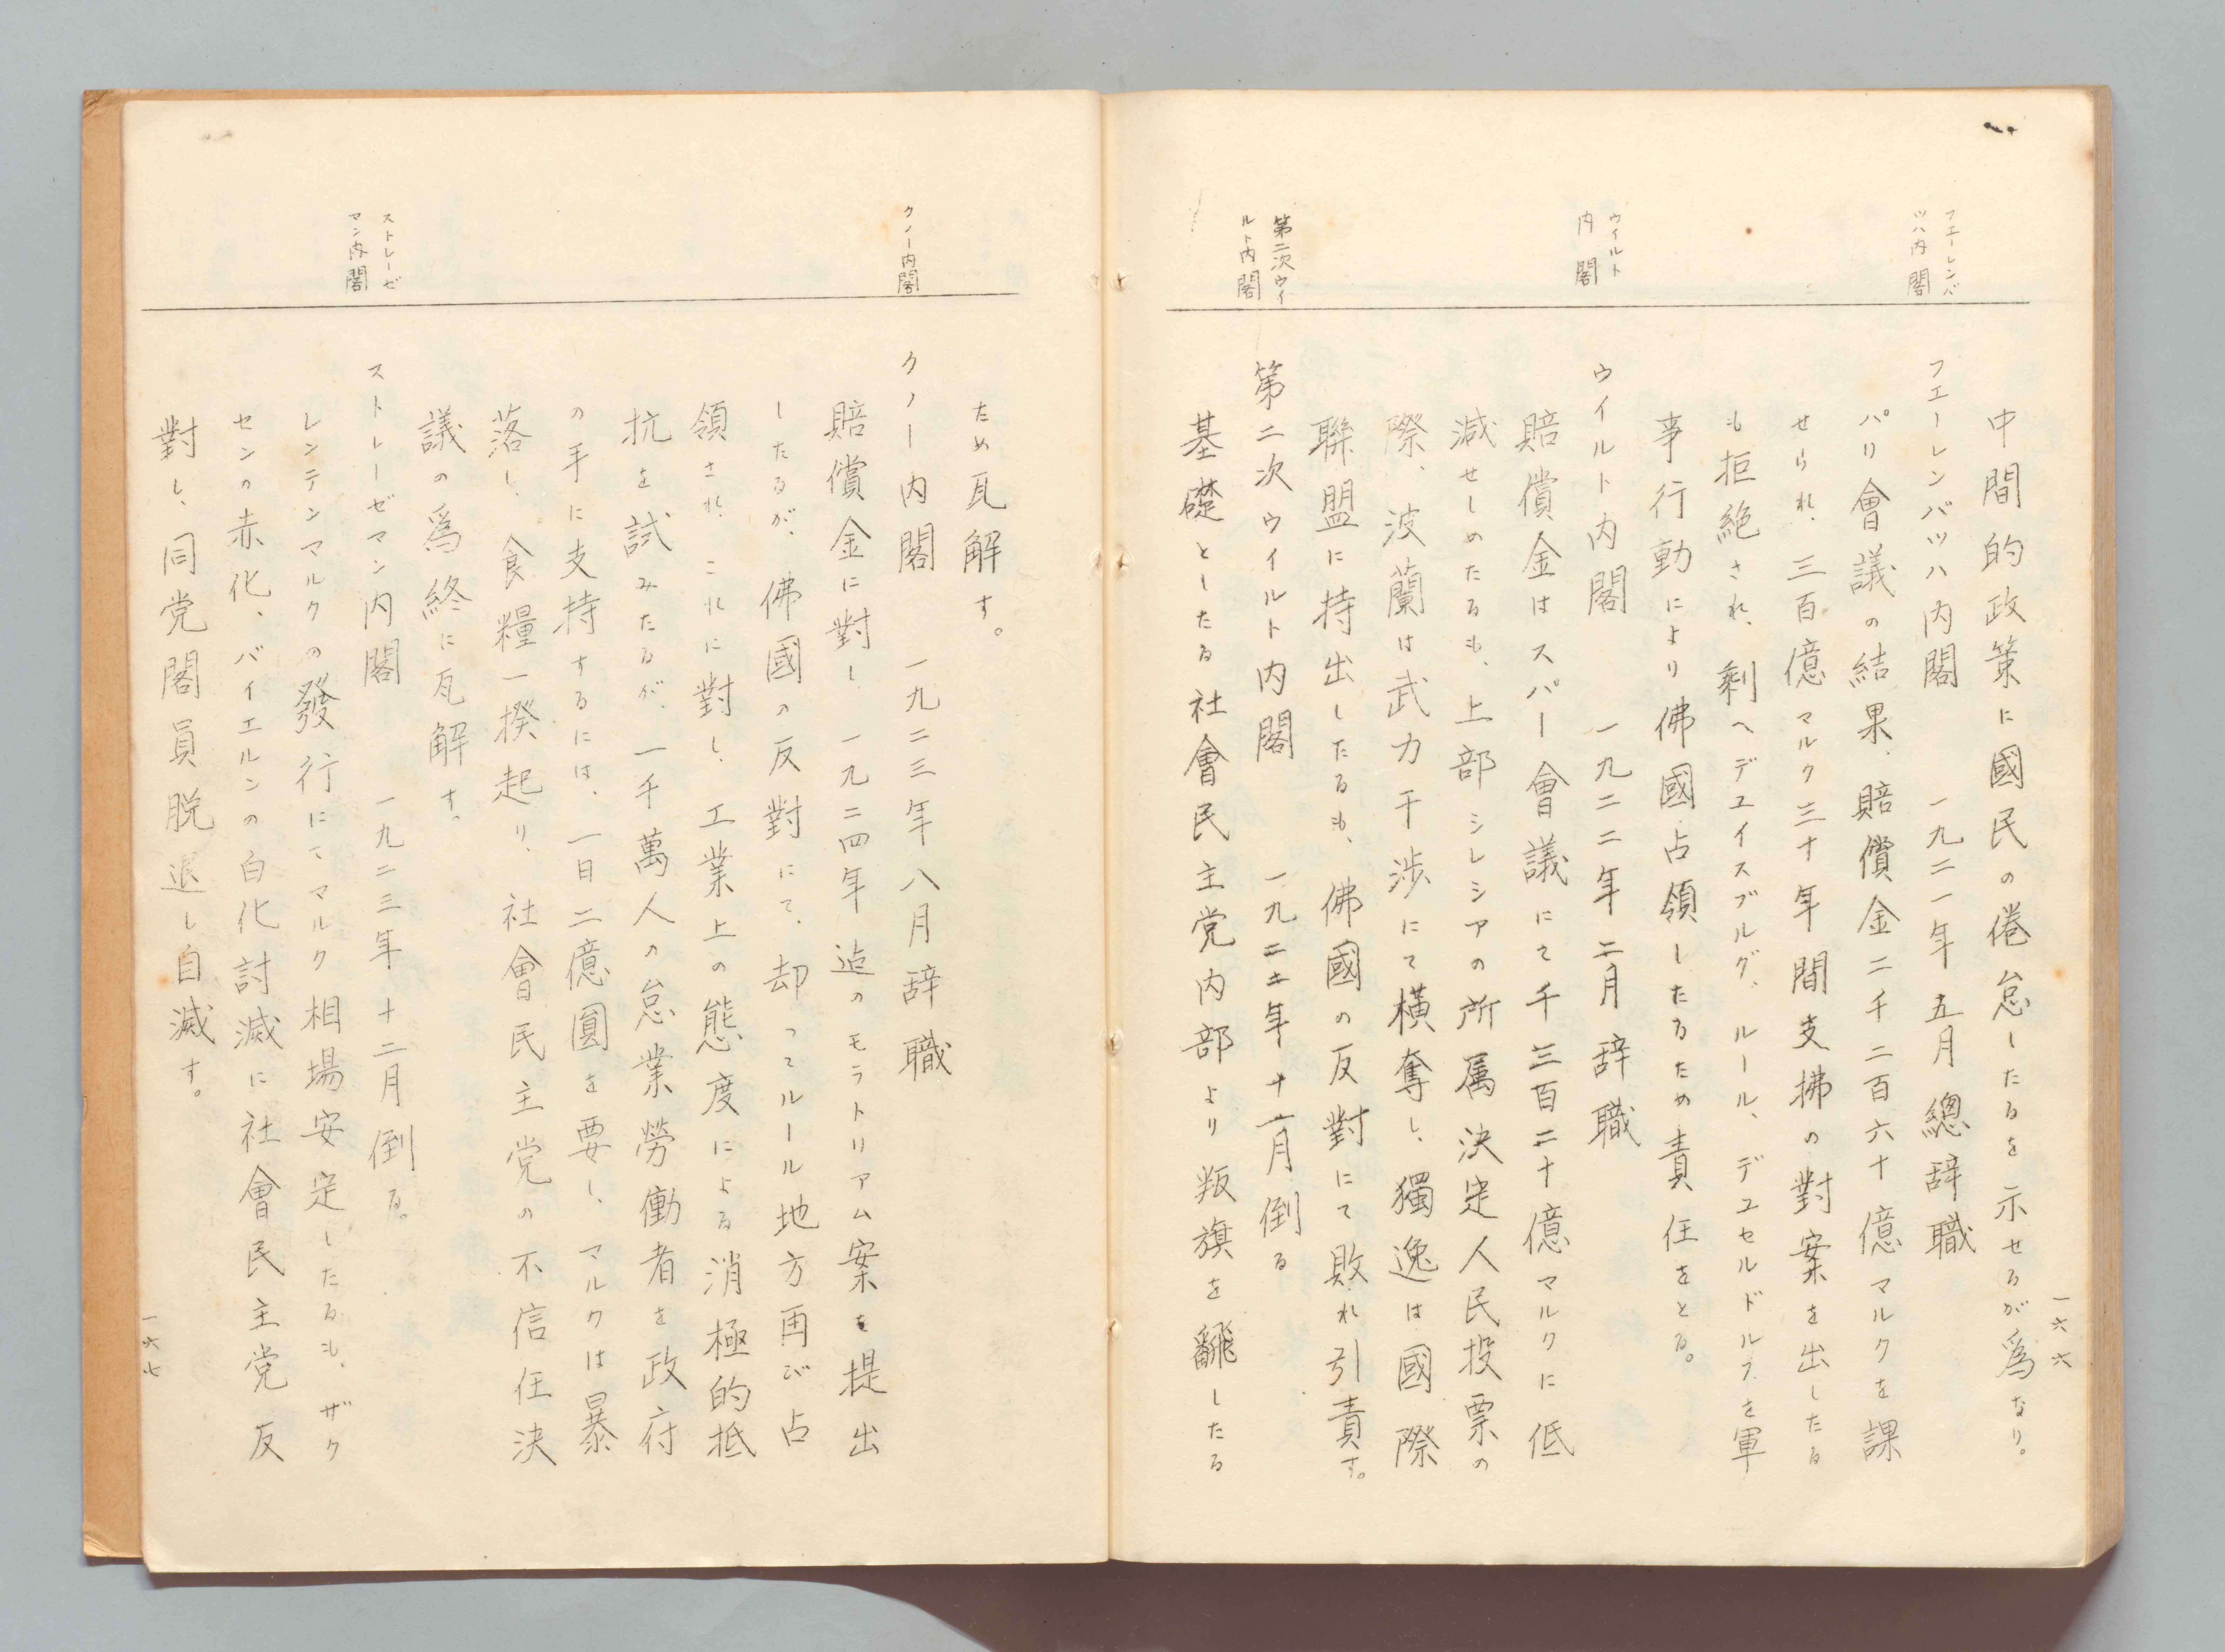 一六六
フエーレンバ
ツハ内閣
ウイルト
内閣
第二次ウイ
ルト内閣
中間的政策に國民の倦怠したるを示せるが爲なり。
フエーレンバツハ内閣　一九二一年五月總辞職
パリ會議の結果、賠償金二千二百六十億マルクを課
せられ、三百億マルク三十年間支拂の對案を出したる
も拒絶され、剰へデユイスブルグ、ルール、デユセルドルフを軍
事行動により佛國占領したるため責任をとる。
ウイルト内閣　一九二二年二月辞職
賠償金はスパー會議にて千三百二十億マルクに低
減せしめたるも、上部シレシアの所属決定人民投票の
際、波蘭は武力干渉にて横奪し、獨逸は國際
聯盟に持出したるも、佛國の反對にて敗れ引責す。
第二次ウイルト内閣　一九二二年十一月倒る
基礎としたる社會民主党内部より叛旗を飜したる
クノー内閣
ストレーゼ
マン内閣
ため瓦解す。
クノー内閣　一九二三年八月辞職
賠償金に對し一九二四年迠のモラトリアム案を提出
したるが、佛國の反對にて、却つてルール地方再び占
領され、これに對し、工業上の態度による消極的抵
抗を試みたるが、一千萬人の怠業勞働者を政府
の手に支持するには、一日二億圓を要し、マルクは暴
落し、食糧一揆起り、社會民主党の不信任決
議の爲終に瓦解す。
ストレーゼマン内閣　一九二三年十二月倒る。
レンテンマルクの發行にてマルク相場安定したるも、ザク
センの赤化、バイエルンの白化討滅に社會民主党反
對し、同党閣員脱退し自滅す。
一六七